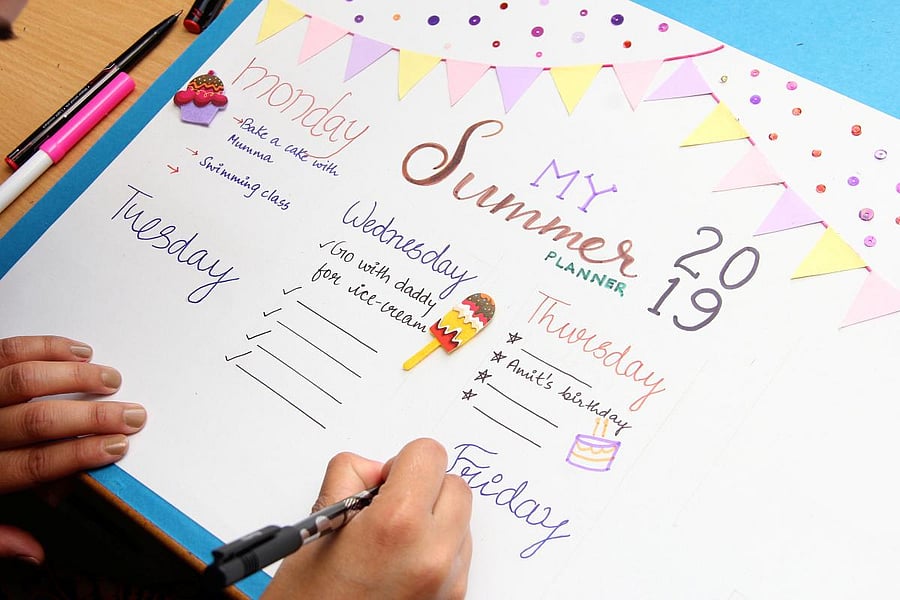 MY
Summer
PLANNER
2019
monday
→Bake a cake with
Mumma
→ Swimming class
→
Tuesday
Wednesday
✓Go with daddy
for ice-cream
✓
✓
✓
✓
Thursday
☆
☆ Amit's birthday
☆
☆
Friday